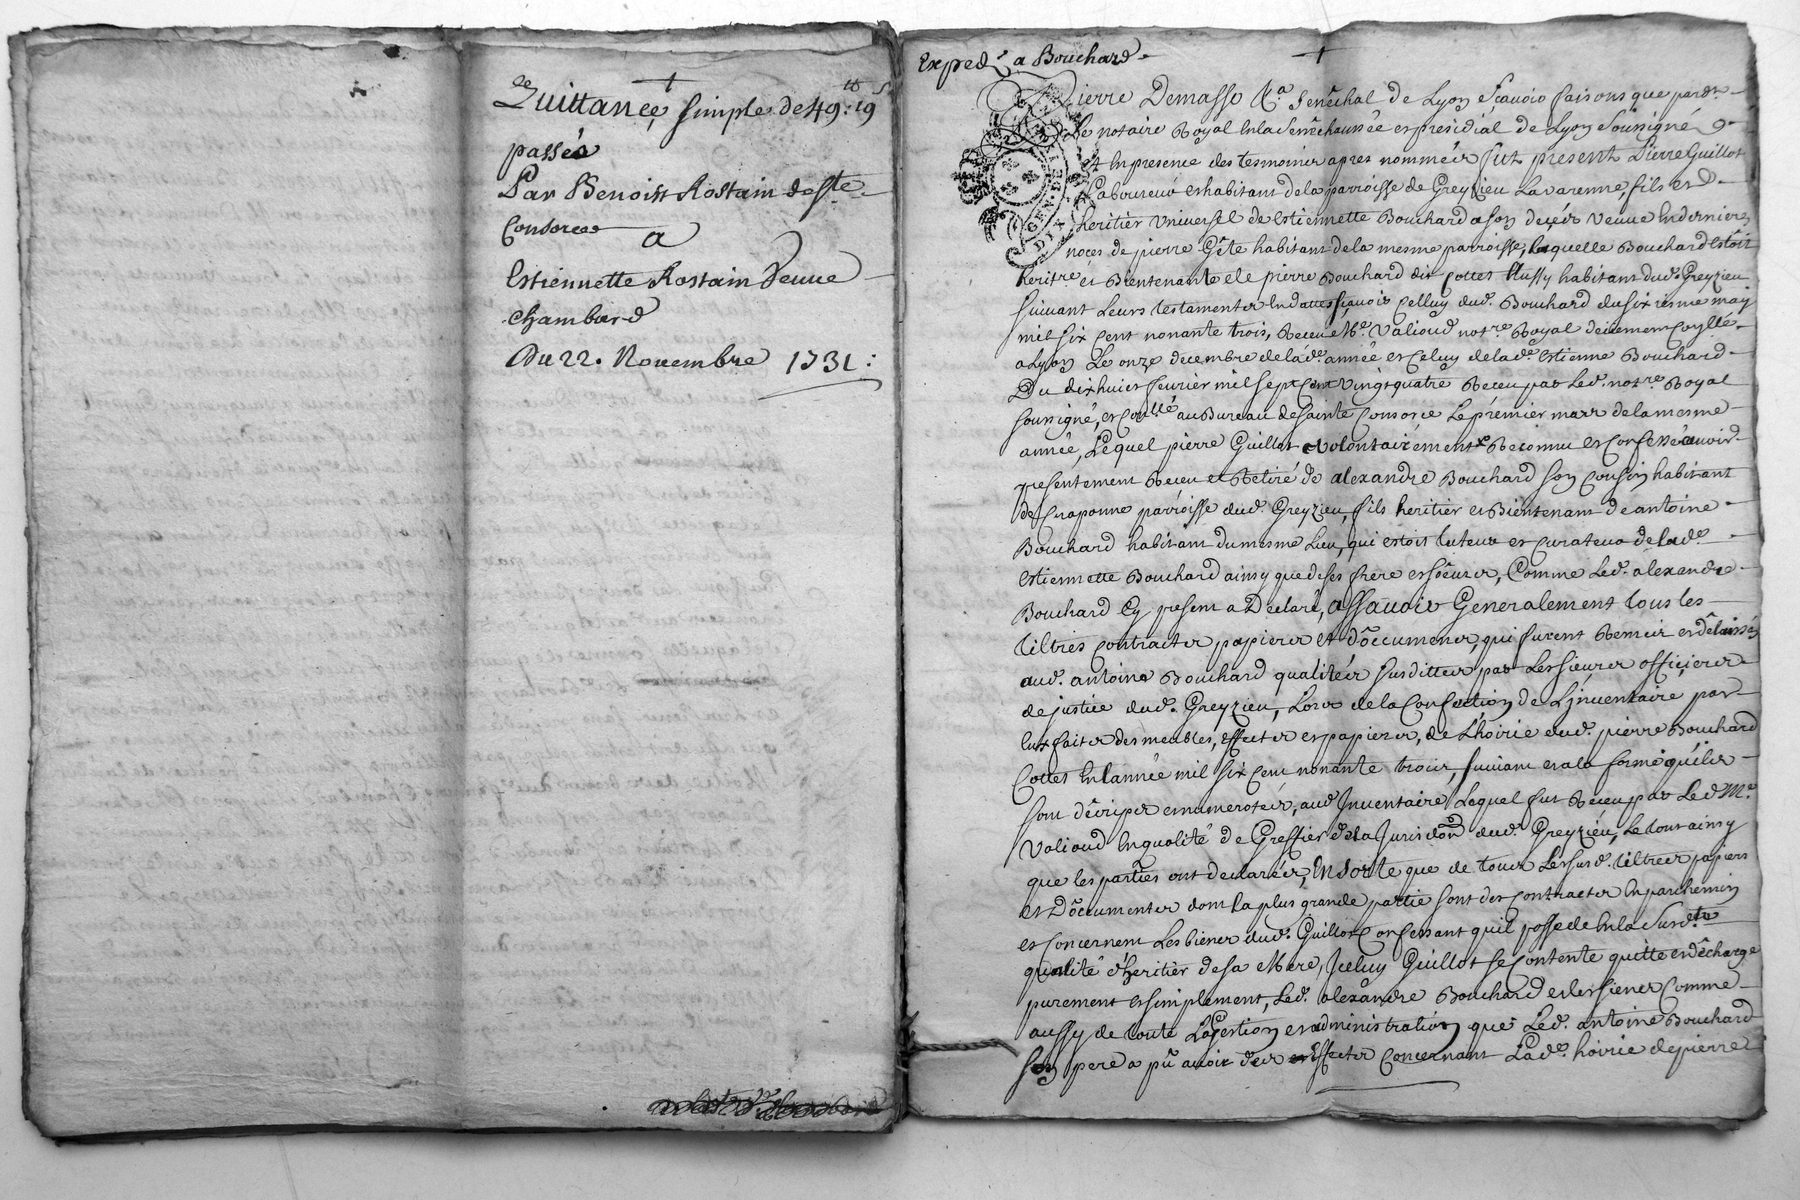 2e
Quittance simple de 49: 19
passée
Par Benoist Rostain de Ste
Consorce
a
Estiennette Rostain Veuue
chambard
Du 22. Nouembre 1731:
Exped. a Bouchard
Pierre Demasso Senêchal de Lyon Sçauoir faisons que pardt
Le notaire Royal En la Senêchaussée et presidial de Lyon Soussigné
Et En presence des tesmoins apres nommés fut present Pierre Guillot
Laboureur et habitant de la parroisse de Greyzieu Lauarenne, fils et
heritier Vniuersel de Estiennette Bouchard a son decés veuue En dernieres
noces de pierre Gête habitant de la mesme parroisse, laquelle Bouchard Estoit
heritre et Bientenante de pierre Bouchard dit Cottet Aussy habitant dud. Greyzieu
suiuant Leurs testamentes En dattes sçauoir Celluy dud. Bouchard du sixiesme may
mil six cent nonante trois, Receu Me. Valioud notre. Royal deüement
a Lyon Le onze decembre de lade. année et Celuy de lade. Estienne Bouchard
Du dix huict feurier mil sept Cent Vingt quatre Receu par Led. notre. Royal
soussigné, et Conllé au Bureau de Sainte Consorce Le premier mars de la mesme
année, Lequel pierre Guillot volontairement Reconnu et Confessé auoir
presentement Receu et Retiré de alexandre Bouchard son Cousin habitant
de Craponne parroisse dud. Greyzieu, fils heritier et Bientenant de antoine
Bouchard habitant du mesme Lieu, qui estoit tuteur et Curateur de lade.
Estiennette Bouchard ainsy que de ses frere et soeurs, Comme Led. alexandre
Bouchard Cy present a Declaré, assauoir Generalement tous les
tiltres contractes papiers et dôcuments, qui furent Remis et dêlaissés
aud. antoine Bouchard qualités susdittes par Les sieurs officiers
de justice dud. Greyzieu, Lors de la Confection de L'jnuentaire par
Eux faites des meubles, effectes et papiers, de L'hoirie dud. pierre Bouchard
Cottet En l'année mil six Cent nonante trois, suiuant et a la forme qu'ils
sont dêcripts et numerotés, aud Jnuentaire Lequel fut Receu par Led Me.
Valioud En qualité de Greffier de la Jurisdon dud. Greyzieu, Le tout ainsy
que les parties ont declarées, En sorte que de tous Les susd. tiltres papiers
et Dôcumentes dont la plus grande partie sont des Contractes En parchemin
et Concernent Les biens dud. Guillot Confessant qu'il possede En la susdte
qualité d'heritier de sa Mere, Jceluy Guillot se Contente quitte et dêcharge
purement et simplement, Led. alexandre Bouchard et les siens Comme
aussy de toute La Gestion et administration que Led. antoine Bouchard
son pere a pû auoir des Effectes Concernant Lade. hoirie de pierre